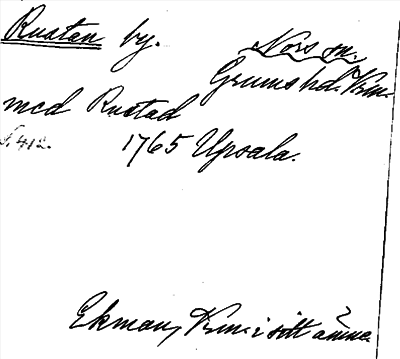 Rustan by. Nors sn.
Grums hd. Vrm.
med Rustad
S. 412. 1765 Upsala.
Ekman, Vrm. i sitt ämne